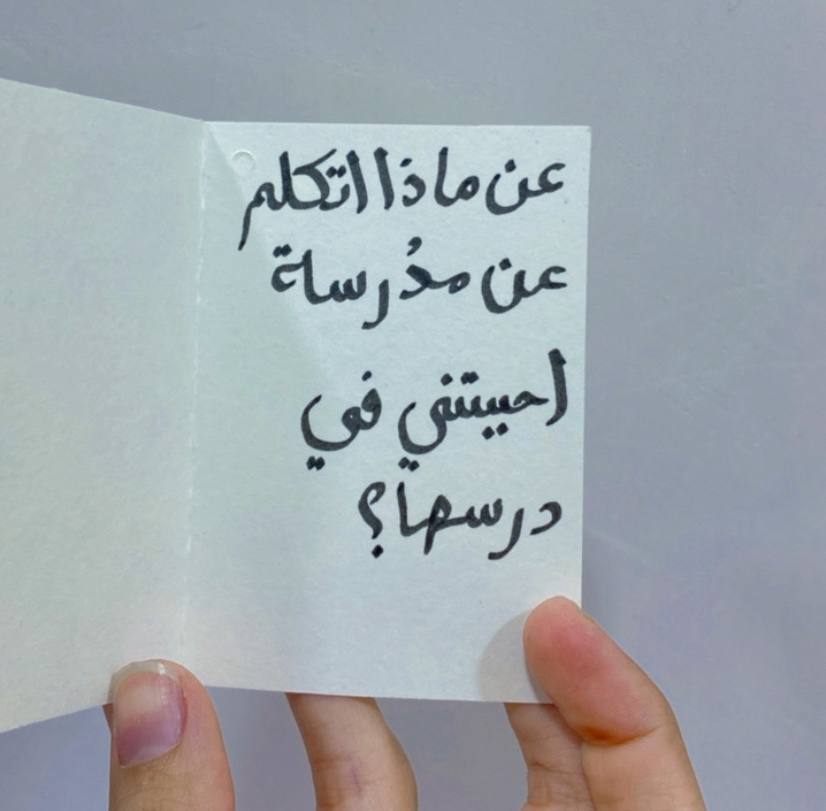 عن ماذا اتكلم
عن مدُرساة
احببتني في
درسها؟